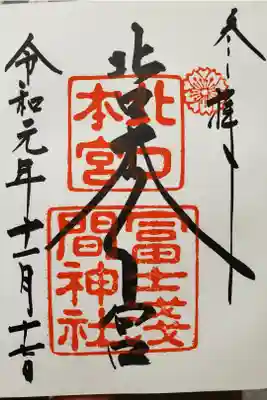 奉拝
北口本宮
令和元年十一月十七日
北口
本宮
冨士淺
間神社